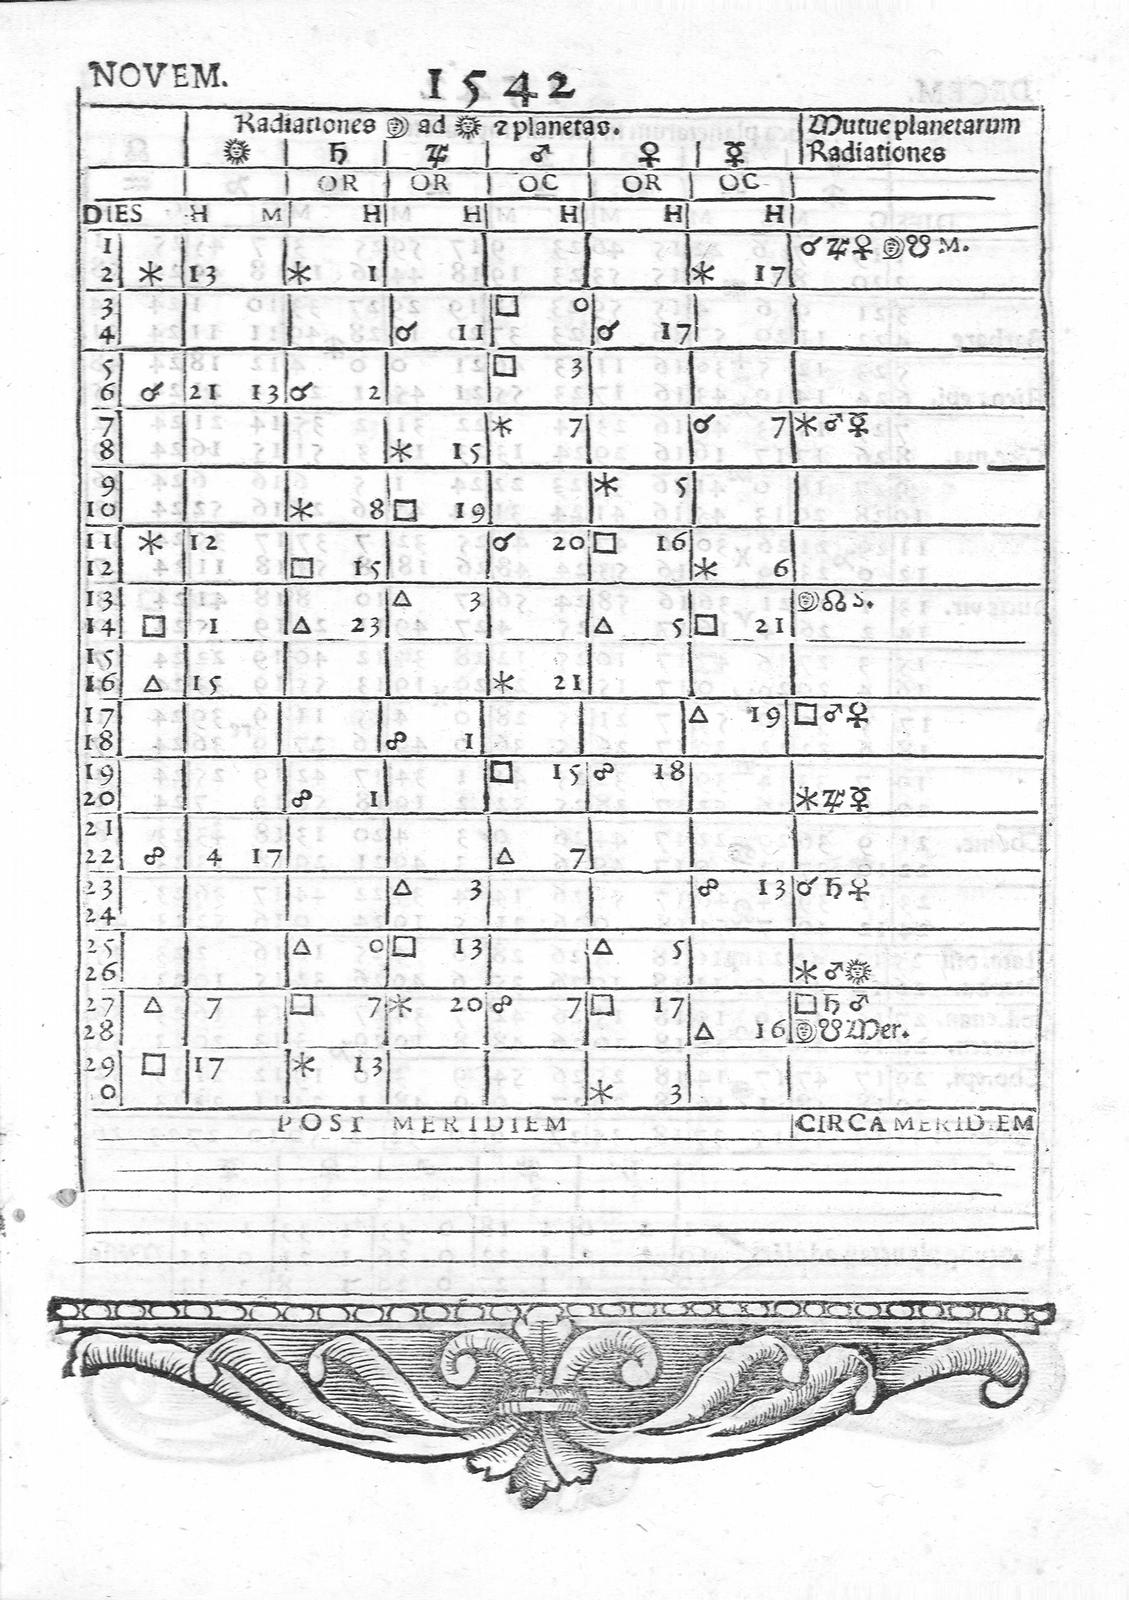 NOVEM. 1542
Radiationes ☽ ad ☉ ⁊ planetas. Mutue planetarum
☉ ♄ ♃ ♂ ♀ ☿ Radiationes
OR OR OC OR OC
DIES H M H H H H H
1 ☌ ♃ ♀ ☽ ☋ M.
2 ⚹ 13 ⚹ 1 ⚹ 17
3 □ 0
4 ☌ 11 ☌ 17
5 □ 3
6 ☌ 21 13 ☌ 2
7 ⚹ 7 ☌ 7 ⚹ ♂ ☿
8 ⚹ 15
9 ⚹ 5
10 ⚹ 8 □ 19
11 ⚹ 12 ☌ 20 □ 16
12 □ 15 ⚹ 6
13 △ 3 ☽ ☊ S.
14 □ 1 △ 23 △ 5 □ 21
15
16 △ 15 ⚹ 21
17 △ 19 □ ♂ ♀
18 ☍ 1
19 □ 15 ☍ 18
20 ☍ 1 ⚹ ♃ ☿
21
22 ☍ 4 17 △ 7
23 △ 3 ☍ 13 ☌ ♄ ♀
24
25 △ 0 □ 13 △ 5
26 ⚹ ♂ ☉
27 △ 7 □ 7 ⚹ 20 ☍ 7 □ 17 □ ♄ ♂
28 △ 16 ☽ ☋ Mer.
29 □ 17 ⚹ 13
0 ⚹ 3
POST MERIDIEM CIRCA MERIDIEM